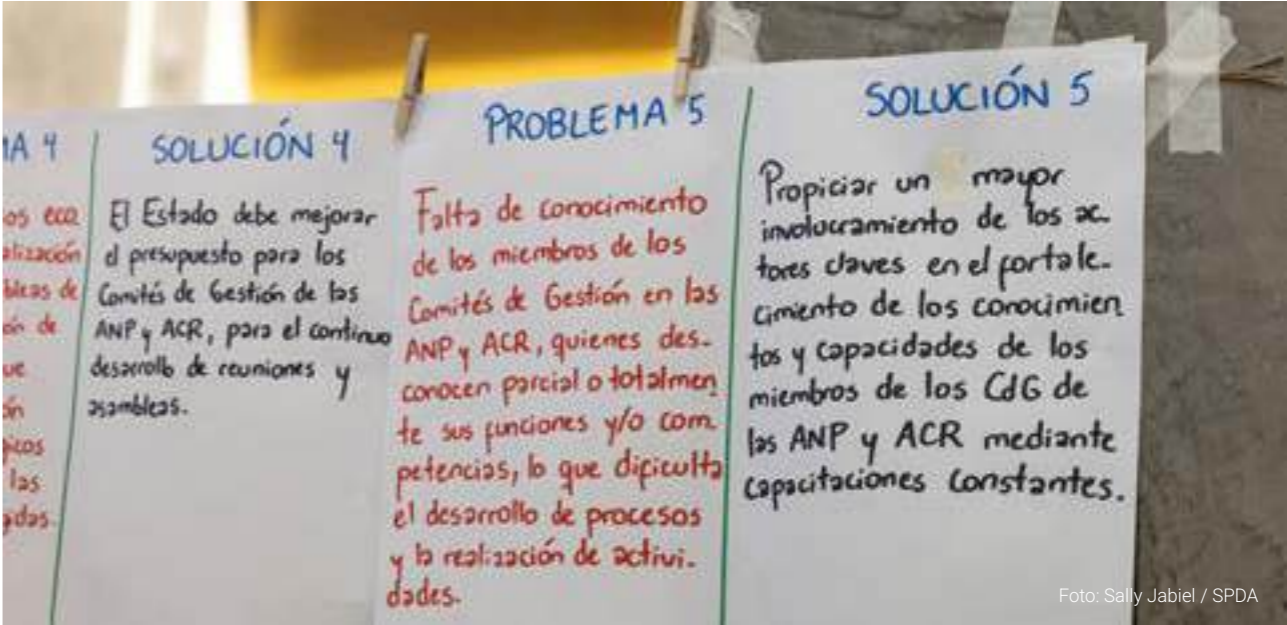 MA 4
os eco
alización
bleas de
ón de
ue
ón
picos
las
adas.
SOLUCIÓN 4
El Estado debe mejorar
el presupuesto para los
Comités de Gestión de las
ANP y ACR, para el continuo
desarrollo de reuniones y
asambleas.
PROBLEMA 5
Falta de conocimiento
de los miembros de los
Comités de Gestión en las
ANP y ACR, quienes des-
conocen parcial o totalmen
te sus funciones y/o com
petencias, lo que dificulta
el desarrollo de procesos
y la realización de activi-
dades.
SOLUCIÓN 5
Propiciar un mayor
involucramiento de los ac-
tores claves en el fortale-
cimiento de los conocimien
tos y capacidades de los
miembros de los CdG de
las ANP y ACR mediante
capacitaciones constantes.
Foto: Sally Jabiel / SPDA